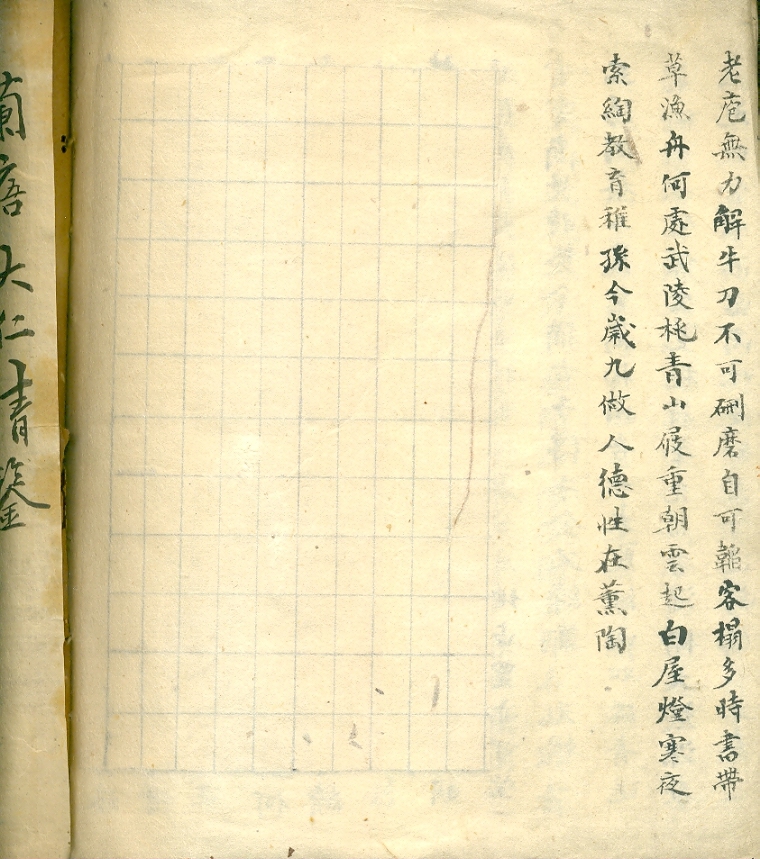 老庖無力解牛刀不可硎磨自可韜客榻多時書帶
草漁舟何處武陵桃青山屐重朝雲起白屋燈寒夜
索綯教育稚孫今歲九做人德性在薰陶
蘭大仁青鑒